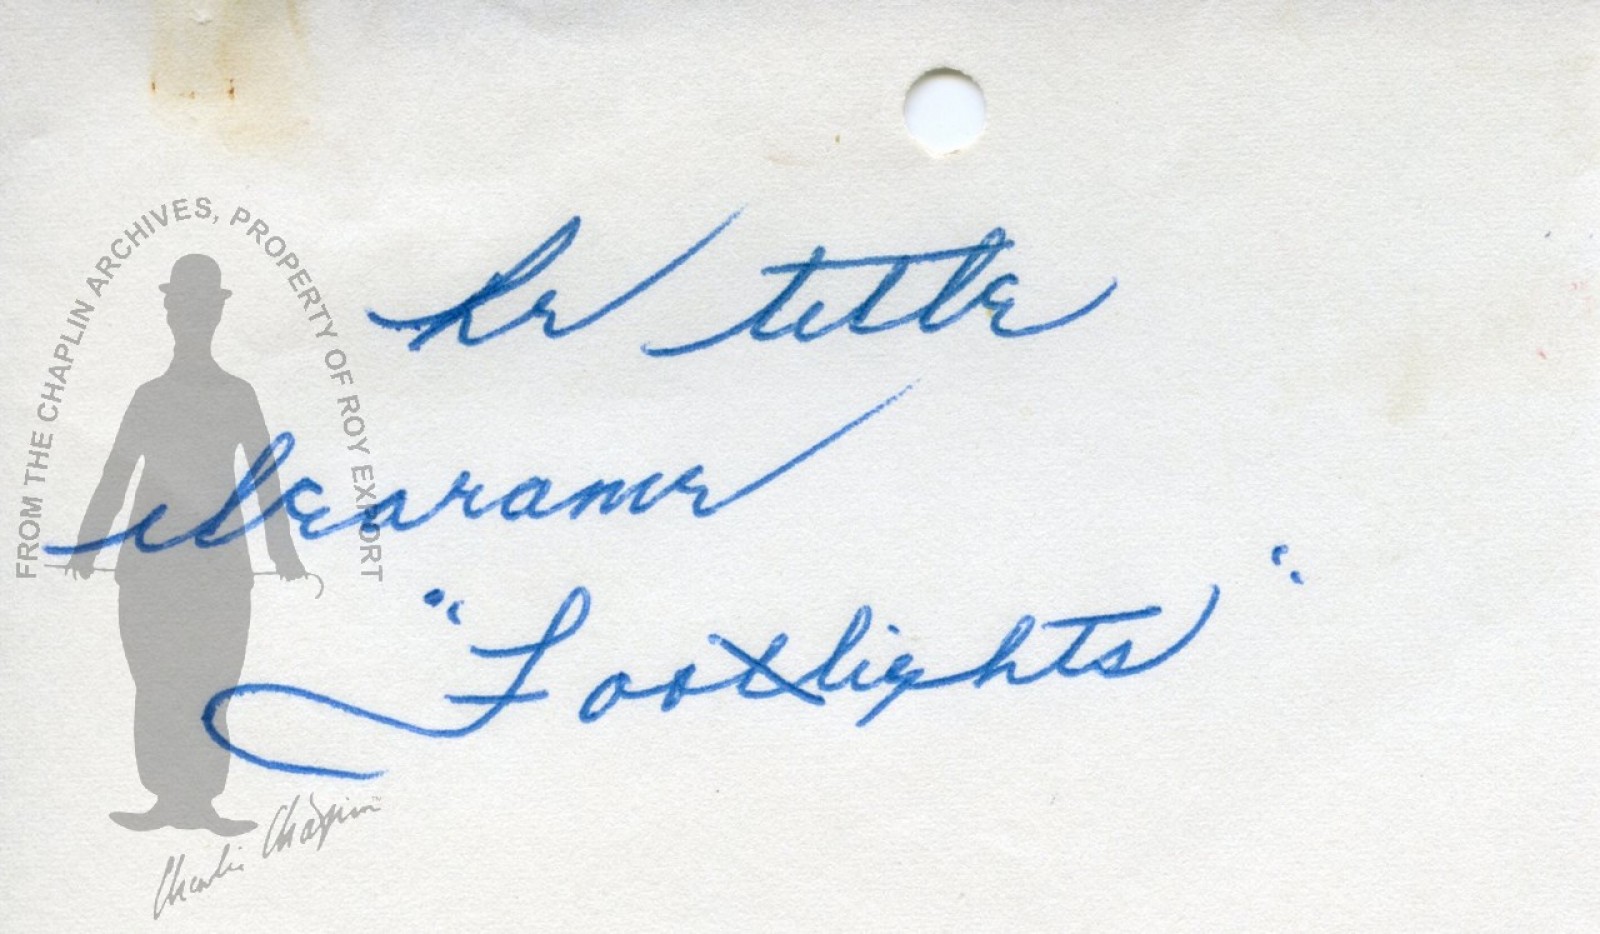 re title
clearance
"Footlights"
FROM THE CHAPLIN ARCHIVES, PROPERTY OF ROY EXPORT
Charlie Chaplin